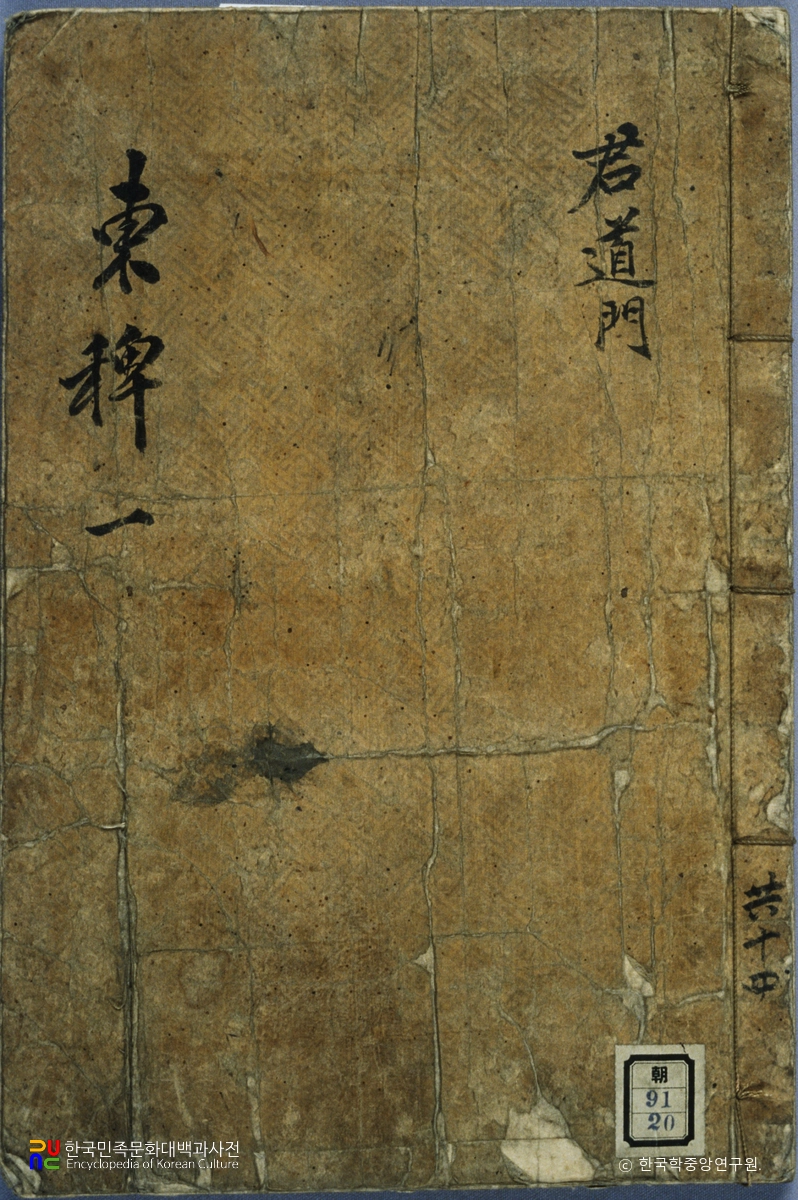 君道門
東稗 一
共十四
朝
91
20
한국민족문화대백과사전
Encyclopedia of Korean Culture
© 한국학중앙연구원.